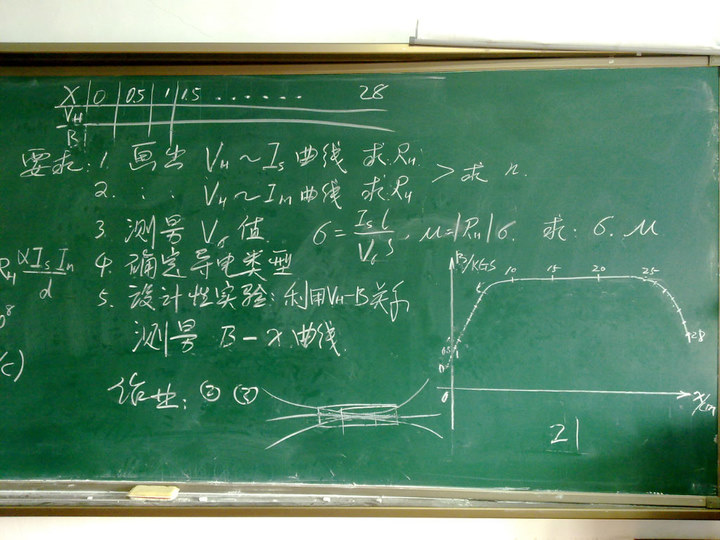 X 0 0.5 1 1.5 ...... 28
VH
B
要求: 1. 画出 VH~Is 曲线 求:RH
2. : : VH~IM 曲线 求RH > 求 n.
3. 测量 Vσ 值. σ=Isl/VσS, μ=|RH|σ. 求: σ. μ
4. 确定导电类型
5. 设计性实验: 利用VH-B关系
测量 B-X 曲线
作业: ② ③
αIsIM/d
(C)
B/KGS
10 15 20 25
28
0
X/cm
21